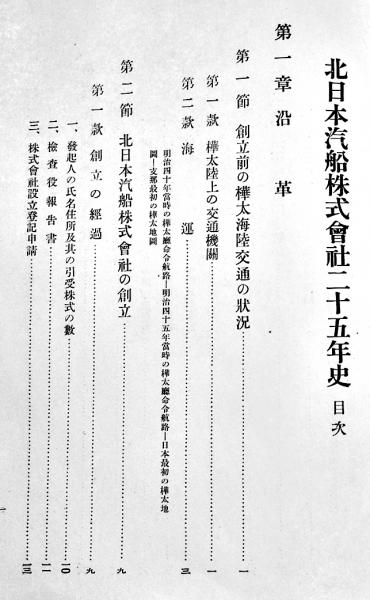 北日本汽船株式會社二十五年史 目次
第一章 沿革
第一節 創立前の樺太海陸交通の狀況……一
第一款 樺太陸上の交通機關……一
第二款 海運……三
明治四十年當時の樺太廳命令航路―明治四十五年當時の樺太廳命令航路―日本最初の樺太地
圖―支那最初の樺太地圖
第二節 北日本汽船株式會社の創立……九
第一款 創立の經過……九
一、發起人の氏名住所及其の引受株式の數……一〇
二、檢査役報告書……一一
三、株式會社設立登記申請……一三
一